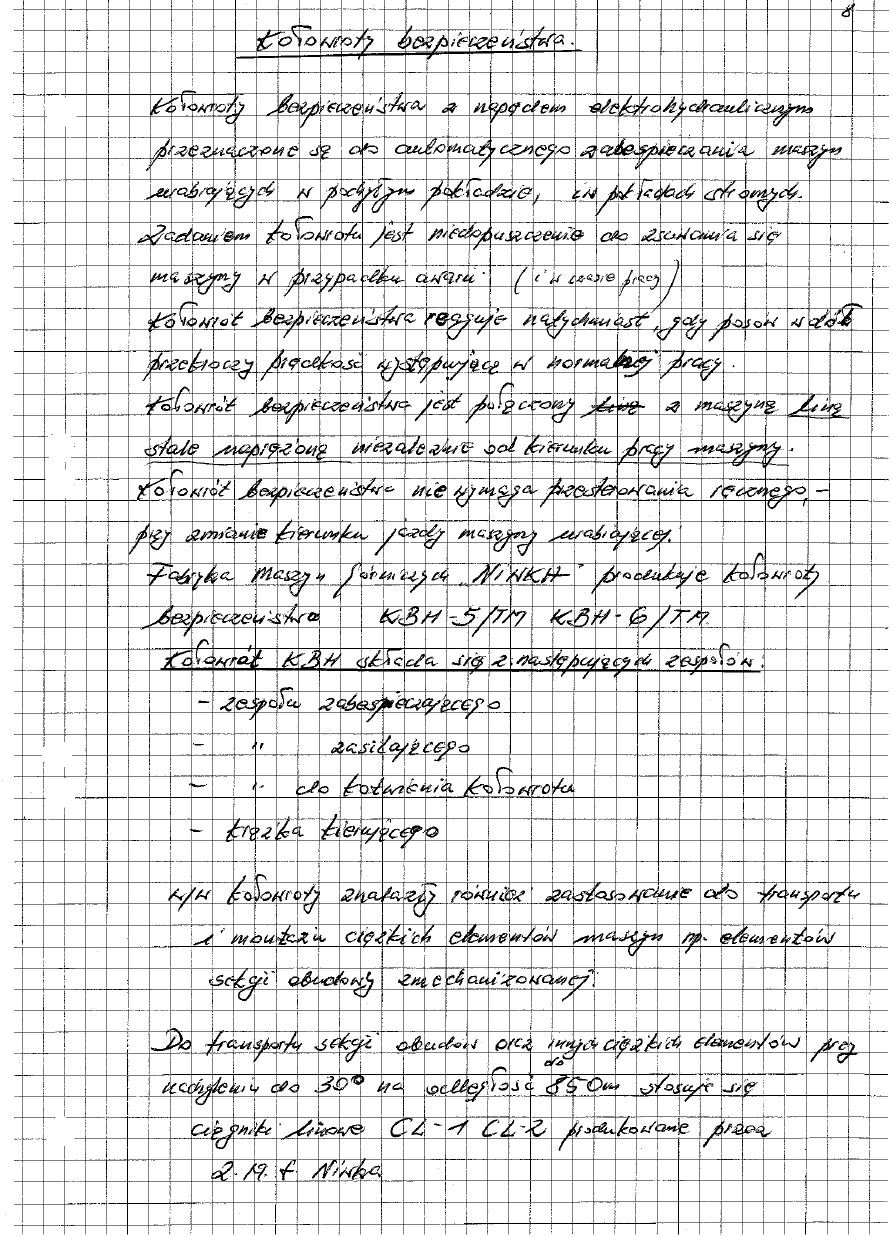 8
Kołowroty bezpieczeństwa.
Kołowroty bezpieczeństwa z napędem elektrohydraulicznym
przeznaczone są do automatycznego zabezpieczania maszyn
urabiających w pochyłym pokładzie, i w pokładach stromych.
Zadaniem kołowrotu jest niedopuszczenie do zsuwania się
maszyny w przypadku awarii (i w czasie pracy)
Kołowrót bezpieczeństwa reaguje natychmiast, gdy posów w dół
przekroczy prędkość występującą w normalnej pracy.
Kołowrót bezpieczeństwa jest połączony linę z maszyną liną
stale naprężoną niezależnie od kierunku pracy maszyny.
Kołowrót bezpieczeństwa nie wymaga przesterowania ręcznego, -
przy zmianie kierunku jazdy maszyny urabiającej.
Fabryka Maszyn Górniczych „NIWKA" produkuje kołowroty
bezpieczeństwa KBH-5/TM KBH-6/TM.
Kołowrót KBH składa się z następujących zespołów:
- zespołu zabezpieczającego
- " zasilającego
- " do kotwienia kołowrotu
- krążka kierującego
w/w kołowroty znalazły również zastosowanie do transportu
i montażu ciężkich elementów maszyn np. elementów
sekcji obudowy zmechanizowanej.
Do transportu sekcji obudów oraz innych ciężkich elementów przy
nachyleniu do 30° na odległość do 850m stosuje się
ciągniki linowe CL-1 CL-2 produkowane przez
Niwka